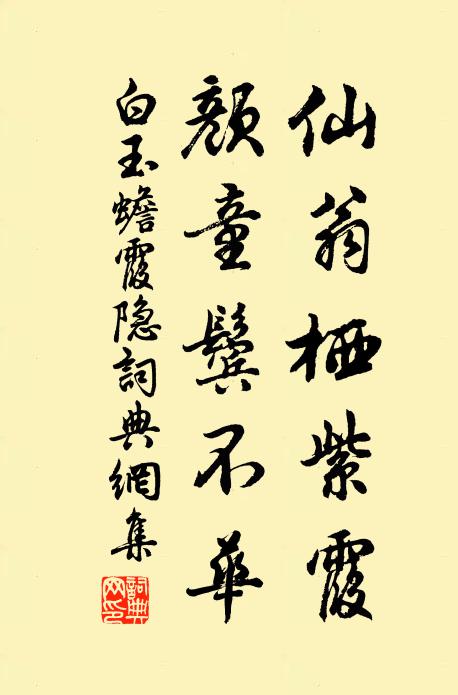 仙翁栖紫霞
颜童鬓不华
白玉蟾霞隐詞典網集
詞典网印